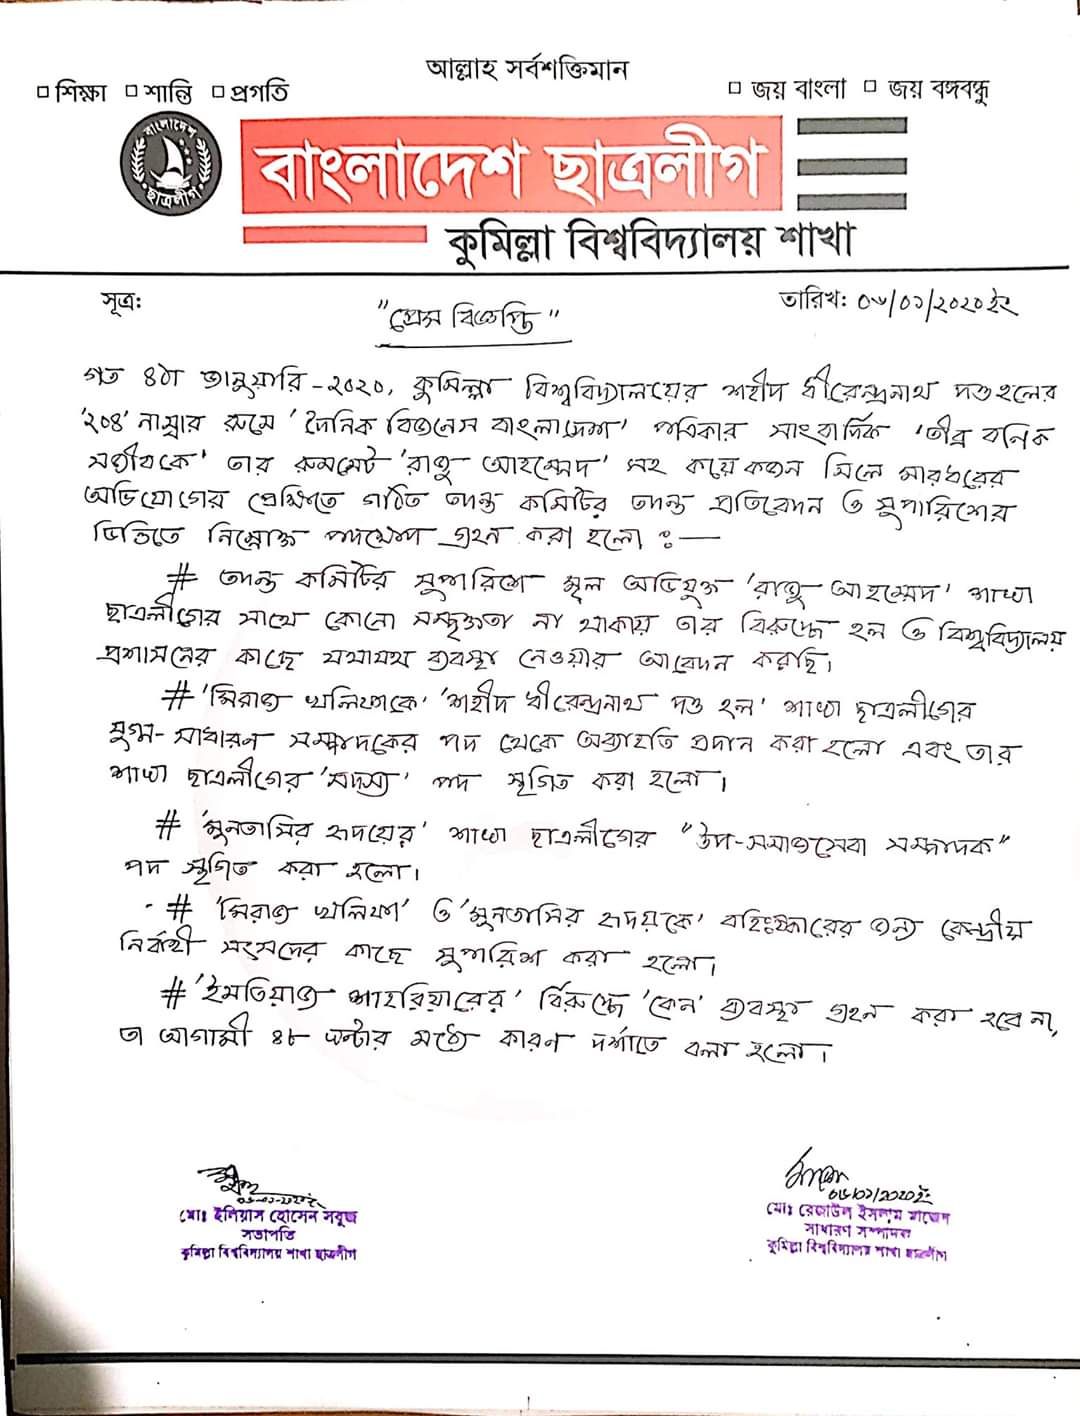 আল্লাহ সর্বশক্তিমান
শিক্ষা শান্তি প্রগতি
জয় বাংলা জয় বঙ্গবন্ধু
বাংলাদেশ ছাত্রলীগ
বাংলাদেশ ছাত্রলীগ
কুমিল্লা বিশ্ববিদ্যালয় শাখা
সূত্র:
তারিখ: ০৬/০১/২০২০ইং
"প্রেস বিজ্ঞপ্তি"
গত ৪ঠা জানুয়ারি-২০২০, কুমিল্লা বিশ্ববিদ্যালয়ের শহীদ ধীরেন্দ্রনাথ দত্ত হলের
'২০৪' নাম্বার রুমে 'দৈনিক বিজনেস বাংলাদেশ' পত্রিকার সাংবাদিক 'তীব্র বনিক
সজীবকে' তার রুমমেট 'রাজু আহম্মেদ' সহ কয়েকজন মিলে মারধরের
অভিযোগের প্রেক্ষিতে গঠিত তদন্ত কমিটির তদন্ত প্রতিবেদন ও সুপারিশের
ভিত্তিতে নিম্নোক্ত পদক্ষেপ গ্রহন করা হলো ঃ—
# তদন্ত কমিটির সুপারিশে মূল অভিযুক্ত 'রাজু আহম্মেদ' শাখা
ছাত্রলীগের সাথে কোনো সম্পৃক্ততা না থাকায় তার বিরুদ্ধে হল ও বিশ্ববিদ্যালয়
প্রশাসনের কাছে যথাযথ ব্যবস্থা নেওয়ার আবেদন করছি।
# 'মিরাজ খলিফাকে' 'শহীদ ধীরেন্দ্রনাথ দত্ত হল' শাখা ছাত্রলীগের
যুগ্ম-সাধারন সম্পাদকের পদ থেকে অব্যাহতি প্রদান করা হলো এবং তার
শাখা ছাত্রলীগের 'সদস্য' পদ স্থগিত করা হলো।
# 'মুনতাসির হৃদয়ের' শাখা ছাত্রলীগের "উপ-সমাজসেবা সম্পাদক"
পদ স্থগিত করা হলো।
# 'মিরাজ খলিফা' ও 'মুনতাসির হৃদয়কে' বহিঃষ্কারের জন্য কেন্দ্রীয়
নির্বাহী সংসদের কাছে সুপারিশ করা হলো।
# 'ইমতিয়াজ শাহরিয়ারের' বিরুদ্ধে 'কেন' ব্যবস্থা গ্রহন করা হবে না,
তা আগামী ৪৮ ঘন্টার মধ্যে কারণ দর্শাতে বলা হলো।
০৬-০১-২০২০ইং
মোঃ ইলিয়াস হোসেন সবুজ
সভাপতি
কুমিল্লা বিশ্ববিদ্যালয় শাখা ছাত্রলীগ
০৬/০১/২০২০ইং
মোঃ রেজাউল ইসলাম মাজেদ
সাধারণ সম্পাদক
কুমিল্লা বিশ্ববিদ্যালয় শাখা ছাত্রলীগ